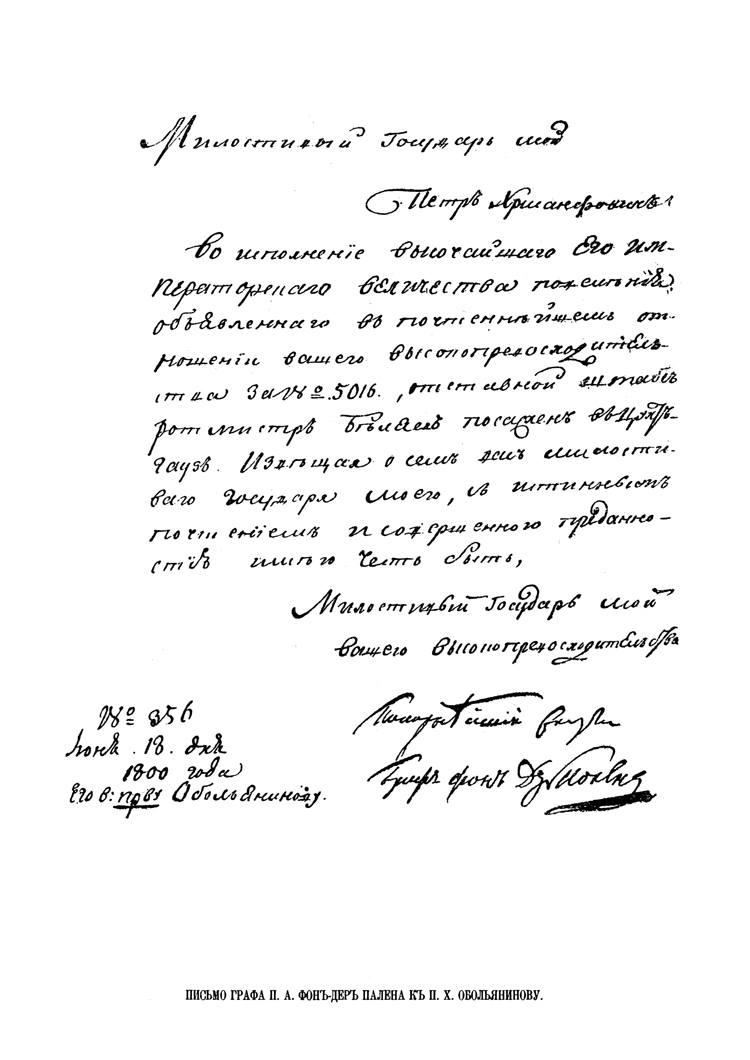 Милостивый Государь мой
Петръ Хрисанфовичь!
Во исполненіе высочайшаго Его им-
ператорскаго величества повелѣнія,
объявленнаго въ почтеннѣйшемъ от-
ношеніи вашего высокопревосходитель-
ства за №. 5016., отставной штабсъ
ротмистръ Бѣляевъ посаженъ въ Цухтъ-
гаузъ. Извѣщая о семъ вамъ милости-
ваго Государя моего, съ истиннымъ
почтеніемъ и совершенною преданно-
стію имѣю честь быть,
Милостивый Государь мой
вашего высокопревосходительства
№ 356
Іюня. 18. дня
1800 года
Его в: прву Обольянинову.
Покорнѣйшій слуга
Графъ фонъ Дер Паленъ
ПИСЬМО ГРАФА П. А. ФОНЪ-ДЕРЪ ПАЛЕНА КЪ П. Х. ОБОЛЬЯНИНОВУ.